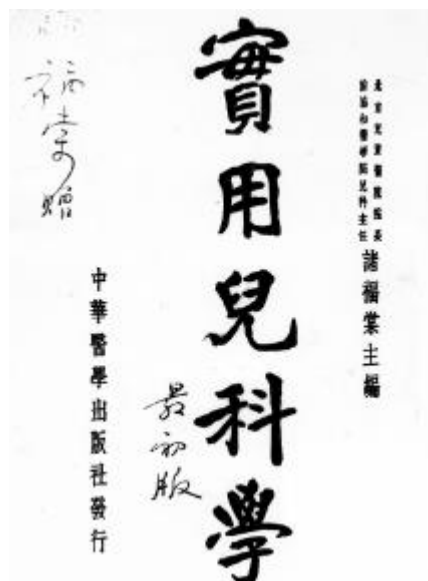 北京兒童醫院院長
前協和醫學院兒科主任
諸福棠主編
實用兒科學
最初版
中華醫學出版社發行
福棠贈